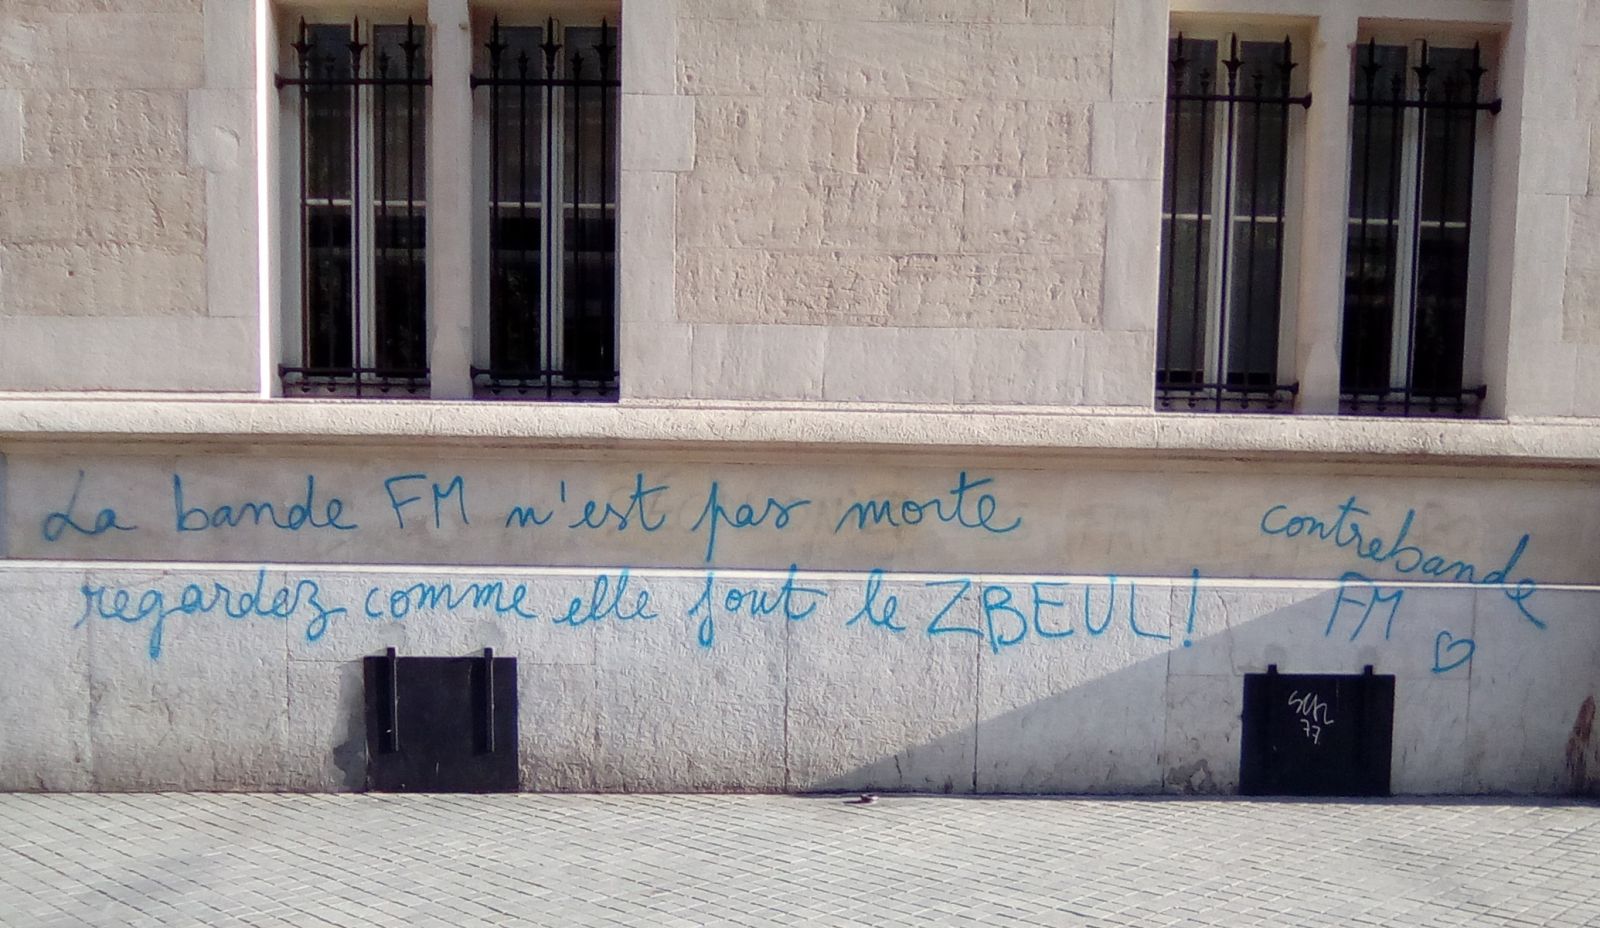 La bande FM n'est pas morte
regardez comme elle fout le ZBEUL!
contrebande
FM
77